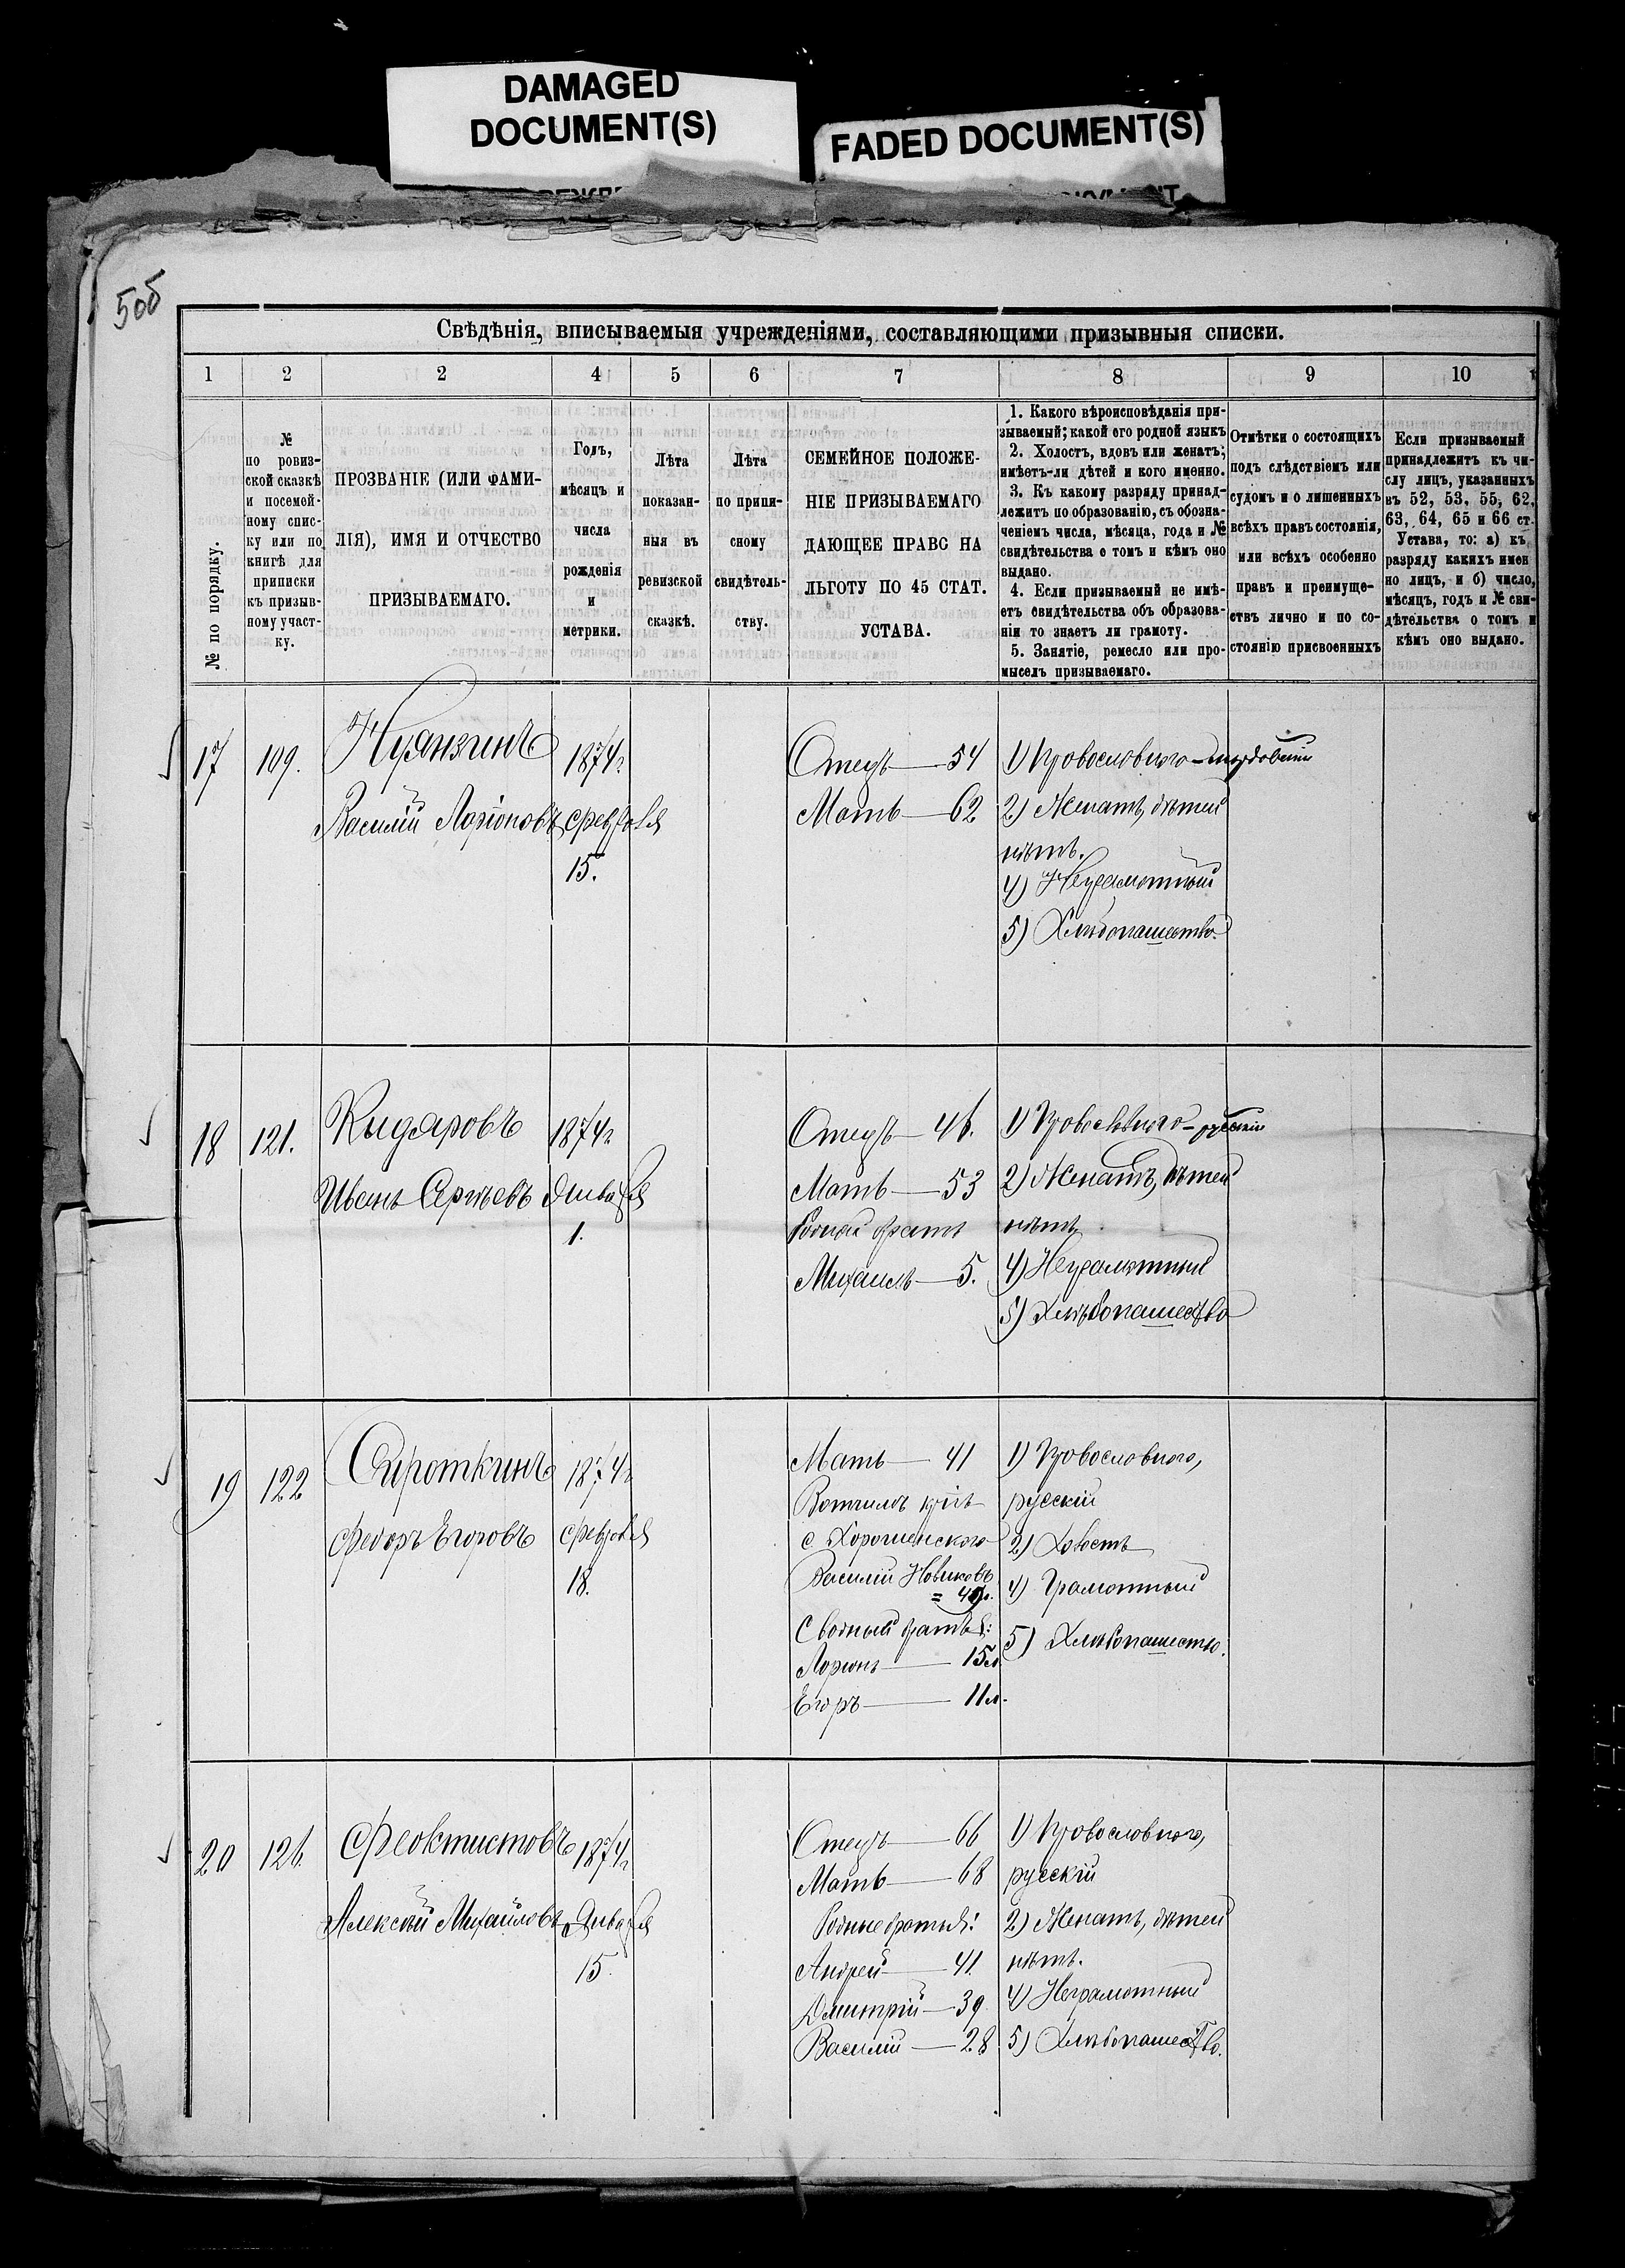 DAMAGED
DOCUMENT(S)
FADED DOCUMENT(S)
50б
Свѣдѣнія, вписываемыя учрежденіями, составляющими призывныя списки.
1 2 2 4 5 6 7 8 9 10
№ по порядку.
№
по ровиз-
ской сказкѣ
и посемей-
ному спис-
ку или по
книгѣ для
приписки
къ призыв-
ному участ-
ку.
ПРОЗВАНІЕ (ИЛИ ФАМИ-
ЛІЯ), ИМЯ И ОТЧЕСТВО
ПРИЗЫВАЕМАГО.
Годъ,
мѣсяцъ и
числа
рожденія
и
метрики.
Лѣта
показан-
ныя въ
ревизской
сказкѣ.
Лѣта
по припи-
сному
свидѣтель-
ству.
СЕМЕЙНОЕ ПОЛОЖЕ-
НІЕ ПРИЗЫВАЕМАГО
ДАЮЩЕЕ ПРАВО НА
ЛЬГОТУ ПО 45 СТАТ.
УСТАВА.
1. Какого вѣроисповѣданія при-
зываемый; какой его родной языкъ
2. Холостъ, вдовъ или женатъ;
имѣетъ-ли дѣтей и кого именно.
3. Къ какому разряду принад-
лежитъ по образованію, съ обозна-
ченіемъ числа, мѣсяца, года и №
свидѣтельства о томъ и кѣмъ оно
выдано.
4. Если призываемый не имѣ-
етъ свидѣтельства объ образова-
ніи то знаетъ ли грамоту.
5. Занятіе, ремесло или про-
мыселъ призываемаго.
Отмѣтки о состоящихъ
подъ слѣдствіемъ или
судомъ и о лишенныхъ
всѣхъ правъ состоянія,
или всѣхъ особенно
правъ и преимуще-
ствъ лично и по со-
стоянію присвоенныхъ
Если призываемый
принадлежитъ къ чи-
слу лицъ, указанныхъ
въ 52, 53, 55, 62,
63, 64, 65 и 66 ст.
Устава, то: а) къ
разряду какихъ имен
но лицъ, и б) число,
мѣсяцъ, годъ и № сви-
дѣтельства о томъ и
кѣмъ оно выдано.
17 109.
Нуянзинъ
Василій Ларіоновъ
1874г.
Февраля
15.
Отецъ — 54
Мать — 62
1) Православнаго – мордовскій
2) Женатъ, дѣтей
нѣтъ.
4) Неграмотный
5) Хлѣбопашество.
18 121.
Кидяровъ
Иванъ Сергѣевъ
1874г
Января
1.
Отецъ — 46.
Мать — 53
Родной братъ
Михаилъ — 5.
1) Православнаго – русскій
2) Женатъ, дѣтей
нѣтъ
4) Неграмотный
5) Хлѣбопашество
19 122
Сироткинъ
Федоръ Егоровъ
1874г
Февраля
18.
Мать — 41
Вотчимъ кр-нъ
с. Хорошенскаго
Василій Новиковъ
= 49л.
Сводный братья:
Ларіонъ — 15л
Егоръ — 11л.
1) Православнаго,
русскій
2) Холостъ
4) Грамотный
5) Хлѣбопашество.
20 126.
Феоктистовъ
Алексѣй Михайловъ
1874г
Января
15.
Отецъ — 66
Мать — 68
Родные братья:
Андрей — 41.
Дмитрій — 39.
Василій — 28
1) Православнаго,
русскій
2) Женатъ, дѣтей
нѣтъ.
4) Неграмотный
5) Хлѣбопашество.